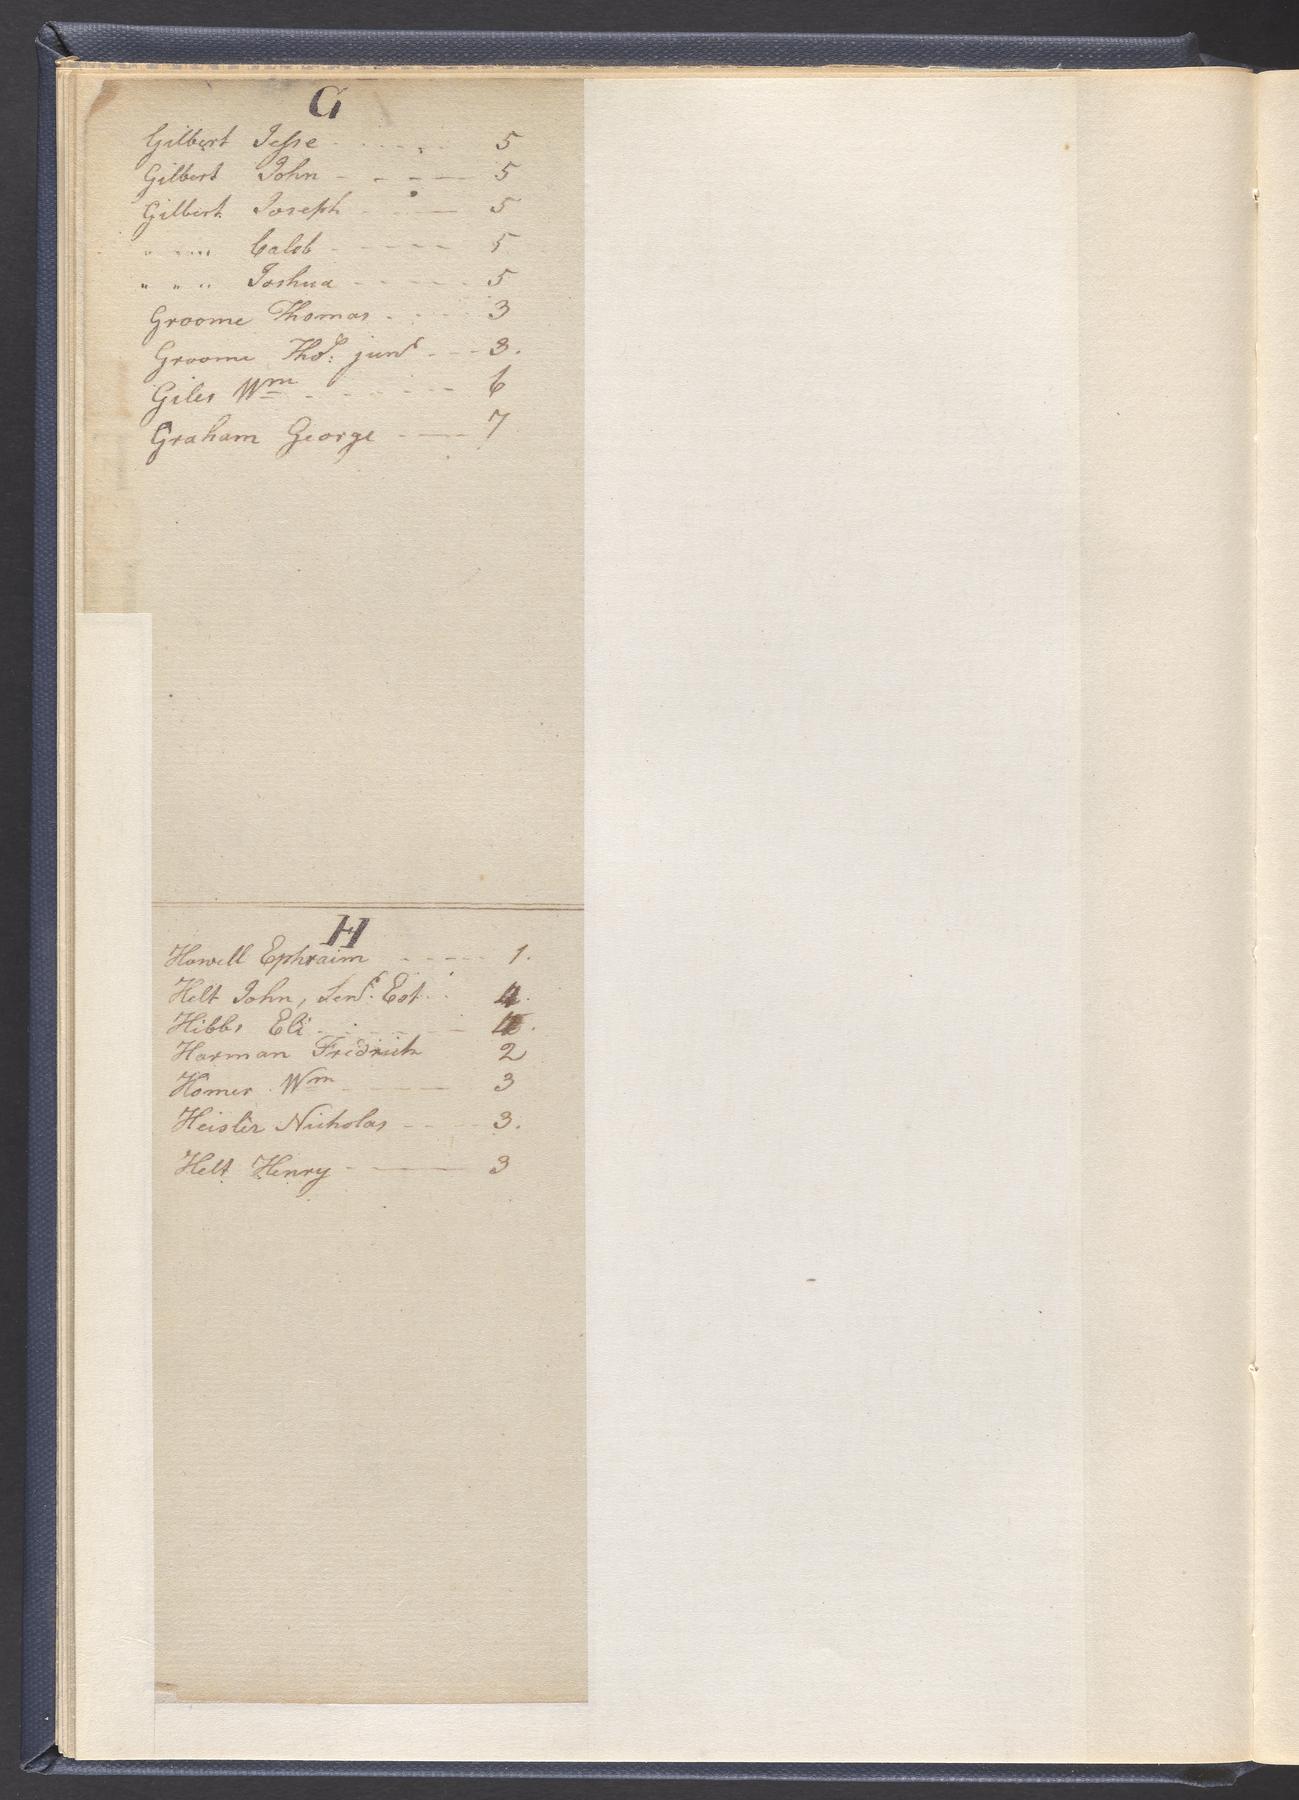 G
Gilbert Jesse - - - - - 5
Gilbert John - - - - 5
Gilbert Joseph - - - 5
" " " Caleb - - - - 5
" " " Joshua - - - - 5
Groome Thomas - - - 3
Groome Thos: junr - - - 3.
Giles Wm - - - - 6
Graham George - - - 7
H
Howell Ephraim - - - - 1.
Helt John, Senr: Est. . 4.
Hibbs Eli - - - - 4.
Harman Fridrich 2
Homer Wm - - - 3
Heisler Nicholas - - - 3.
Helt Henry - - - 3